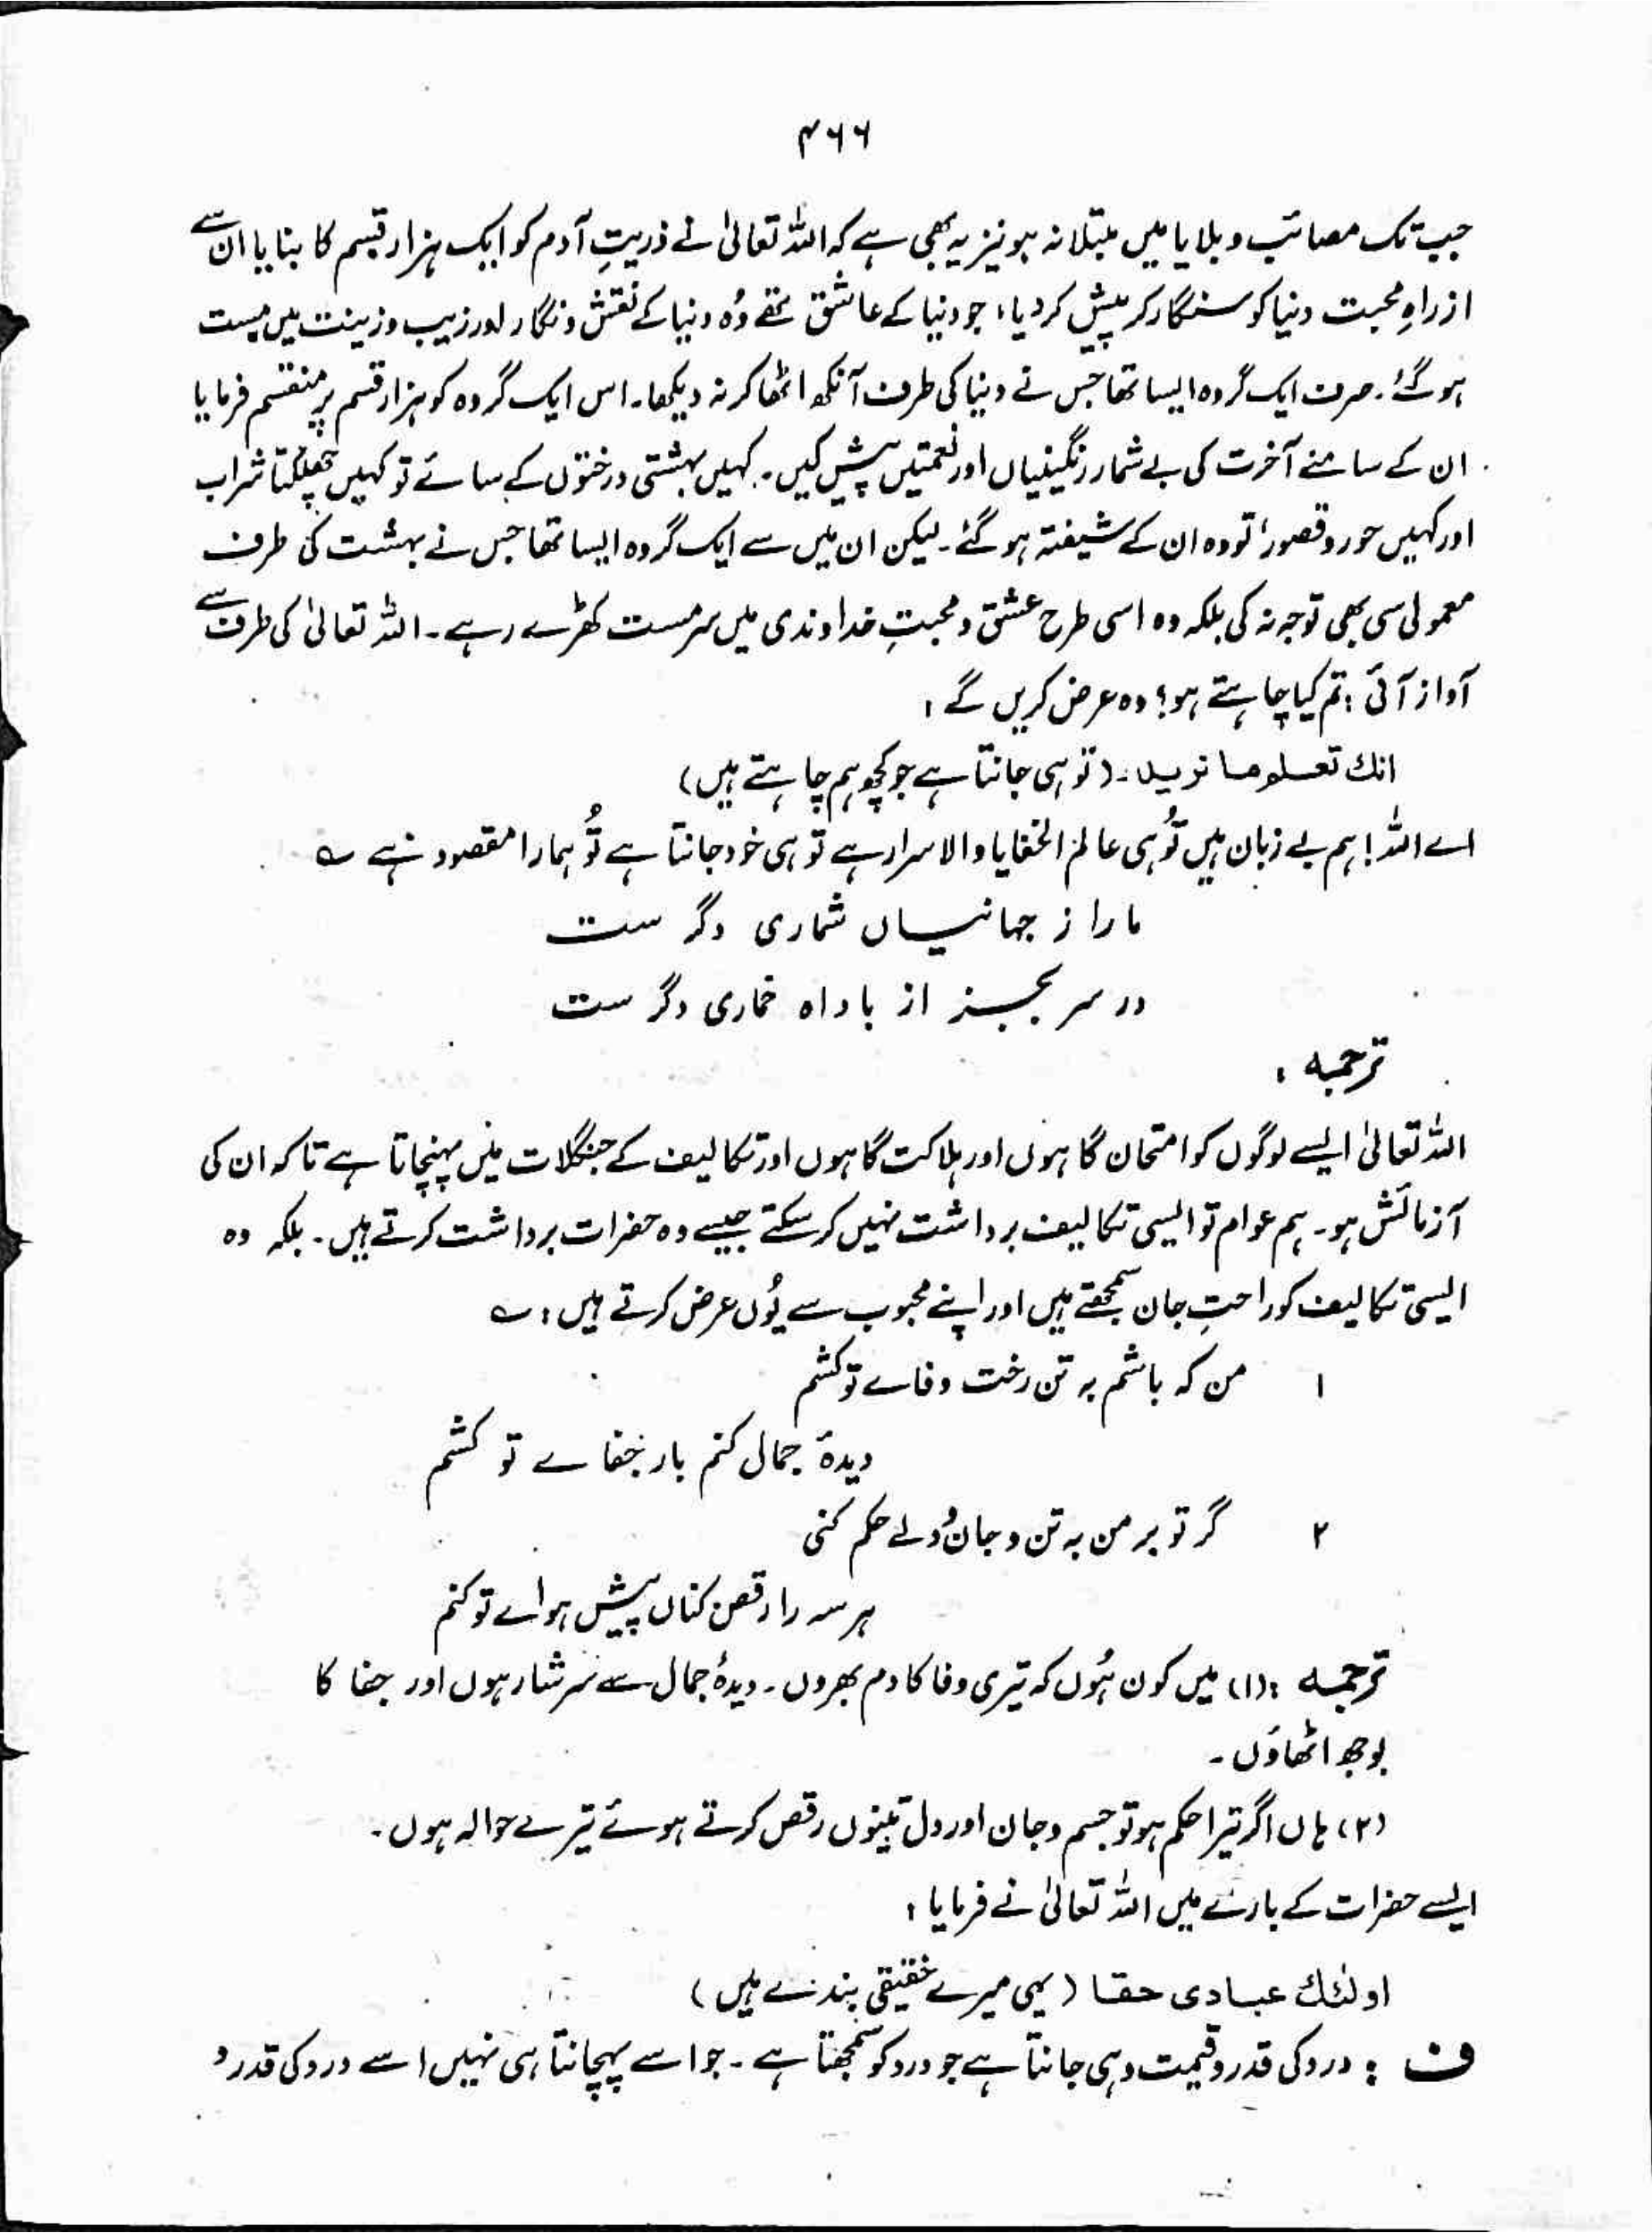 ۴۶۶
جب تک مصائب و بلایا میں مبتلا نہ ہو نیز یہ بھی ہے کہ اللہ تعالیٰ نے ذریتِ آدم کو ایک ہزار قسم کا بنایا ان سے
از راہِ محبت دنیا کو سنگار کر پیش کر دیا، جو دنیا کے عاشق تھے وُہ دنیا کے نقش و نگار اور زیب و زینت میں مست
ہو گئے۔ صرف ایک گروہ ایسا تھا جس نے دنیا کی طرف آنکھ اٹھا کر نہ دیکھا۔ اس ایک گروہ کو ہزار قسم پر منقسم فرمایا
ان کے سامنے آخرت کی بے شمار رنگینیاں اور نعمتیں پیش کیں۔ کہیں بہشتی درختوں کے سائے تو کہیں چھلکتا شراب
اور کہیں حور و قصور، تو وہ ان کے شیفتہ ہو گئے۔ لیکن ان میں سے ایک گروہ ایسا تھا جس نے بہشت کی طرف
معمولی سی بھی توجہ نہ کی بلکہ وہ اسی طرح عشق و محبتِ خداوندی میں سرمست کھڑے رہے۔ اللہ تعالیٰ کی طرف سے
آواز آئی : تم کیا چاہتے ہو؟ وہ عرض کریں گے :
انك تعلم ما نريد۔ (تو ہی جانتا ہے جو کچھ ہم چاہتے ہیں)
اے اللہ! ہم بے زبان ہیں تُو ہی عالم الخفایا والاسرار ہے تو ہی خود جانتا ہے تُو ہمارا مقصود ہے ؎
ما را ز جہانیاں شماری دگر ست
در سر بجز از باداہ خماری دگر ست
ترجمہ :
اللہ تعالیٰ ایسے لوگوں کو امتحان گاہوں اور ہلاکت گاہوں اور تکالیف کے جنگلات میں پہنچاتا ہے تاکہ ان کی
آزمائش ہو۔ ہم عوام تو ایسی تکالیف برداشت نہیں کر سکتے جیسے وہ حضرات برداشت کرتے ہیں۔ بلکہ وہ
ایسی تکالیف کو راحتِ جان سمجھتے ہیں اور اپنے محبوب سے یُوں عرض کرتے ہیں : ؎
۱ من کہ باشم بہ تن رخت وفاے تو کشم
دیدۂ جمال کنم بار جفاے تو کشم
۲ گر تو بر من بہ تن و جان و دلے حکم کنی
ہر سہ را رقص کناں پیش ہواے تو کنم
ترجمہ : (۱) میں کون ہُوں کہ تیری وفا کا دم بھروں۔ دیدۂ جمال سے سرشار ہوں اور جفا کا
بوجھ اٹھاؤں۔
(۲) ہاں اگر تیرا حکم ہو تو جسم و جان اور دل تینوں رقص کرتے ہوئے تیرے حوالہ ہوں۔
ایسے حضرات کے بارے میں اللہ تعالیٰ نے فرمایا :
اولئك عبادی حقا (یہی میرے حقیقی بندے ہیں)
ف : درد کی قدر و قیمت وہی جانتا ہے جو درد کو سمجھتا ہے۔ جو اسے پہچانتا ہی نہیں اسے درد کی قدر و